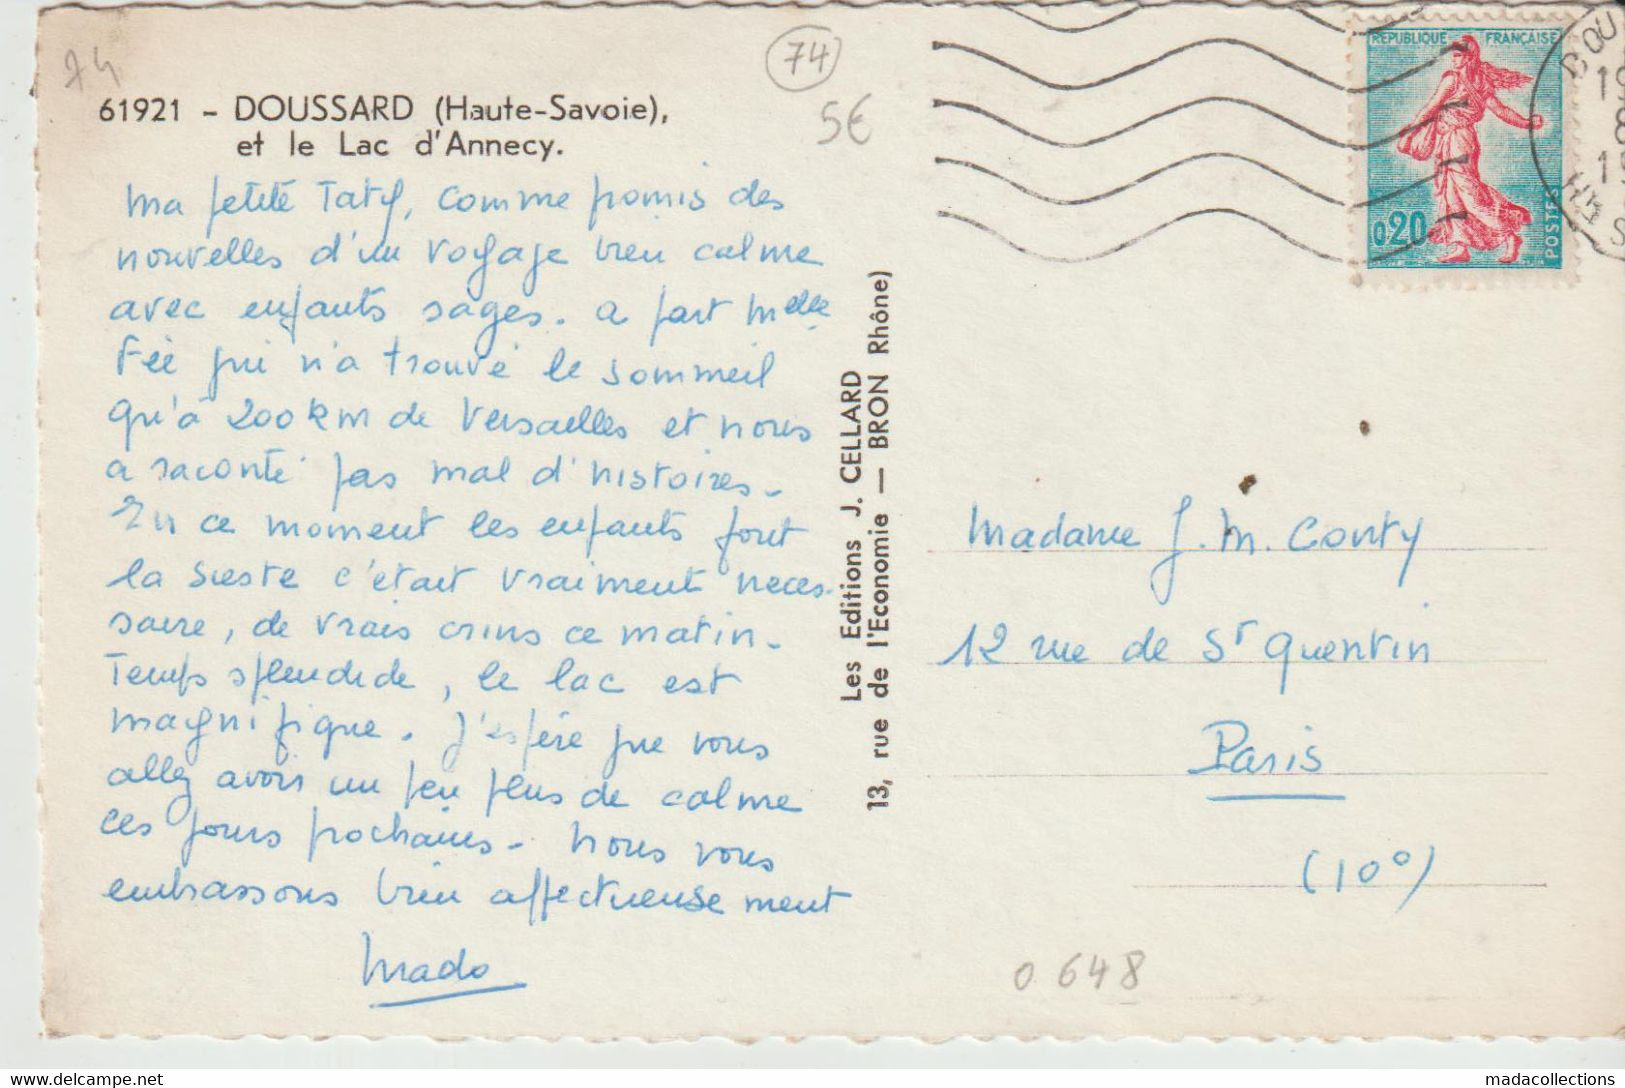 74
74
5€
61921 - DOUSSARD (Haute-Savoie),
et le Lac d'Annecy.
Ma petite Taty, comme promis des
nouvelles d'un voyage bien calme
avec enfants sages. a part Melle
Fée qui n'a trouvé le sommeil
qu'à 200 km de Versailles et nous
a raconté pas mal d'histoires.
En ce moment les enfants font
la sieste c'était vraiment neces-
saire, de vrais crins ce matin.
Temps splendide, le lac est
magnifique. J'espére que vous
allez avoir un peu plus de calme
ces jours prochains. Nous vous
embrassons bien affectueusement
Mado
Les Editions J. CELLARD
13, rue de l'Economie — BRON Rhône)
REPUBLIQUE FRANÇAISE
0,20
POSTES
Madame J. M. Conty
12 rue de St Quentin
Paris
(10°)
0 648
www.delcampe.net
madacollections